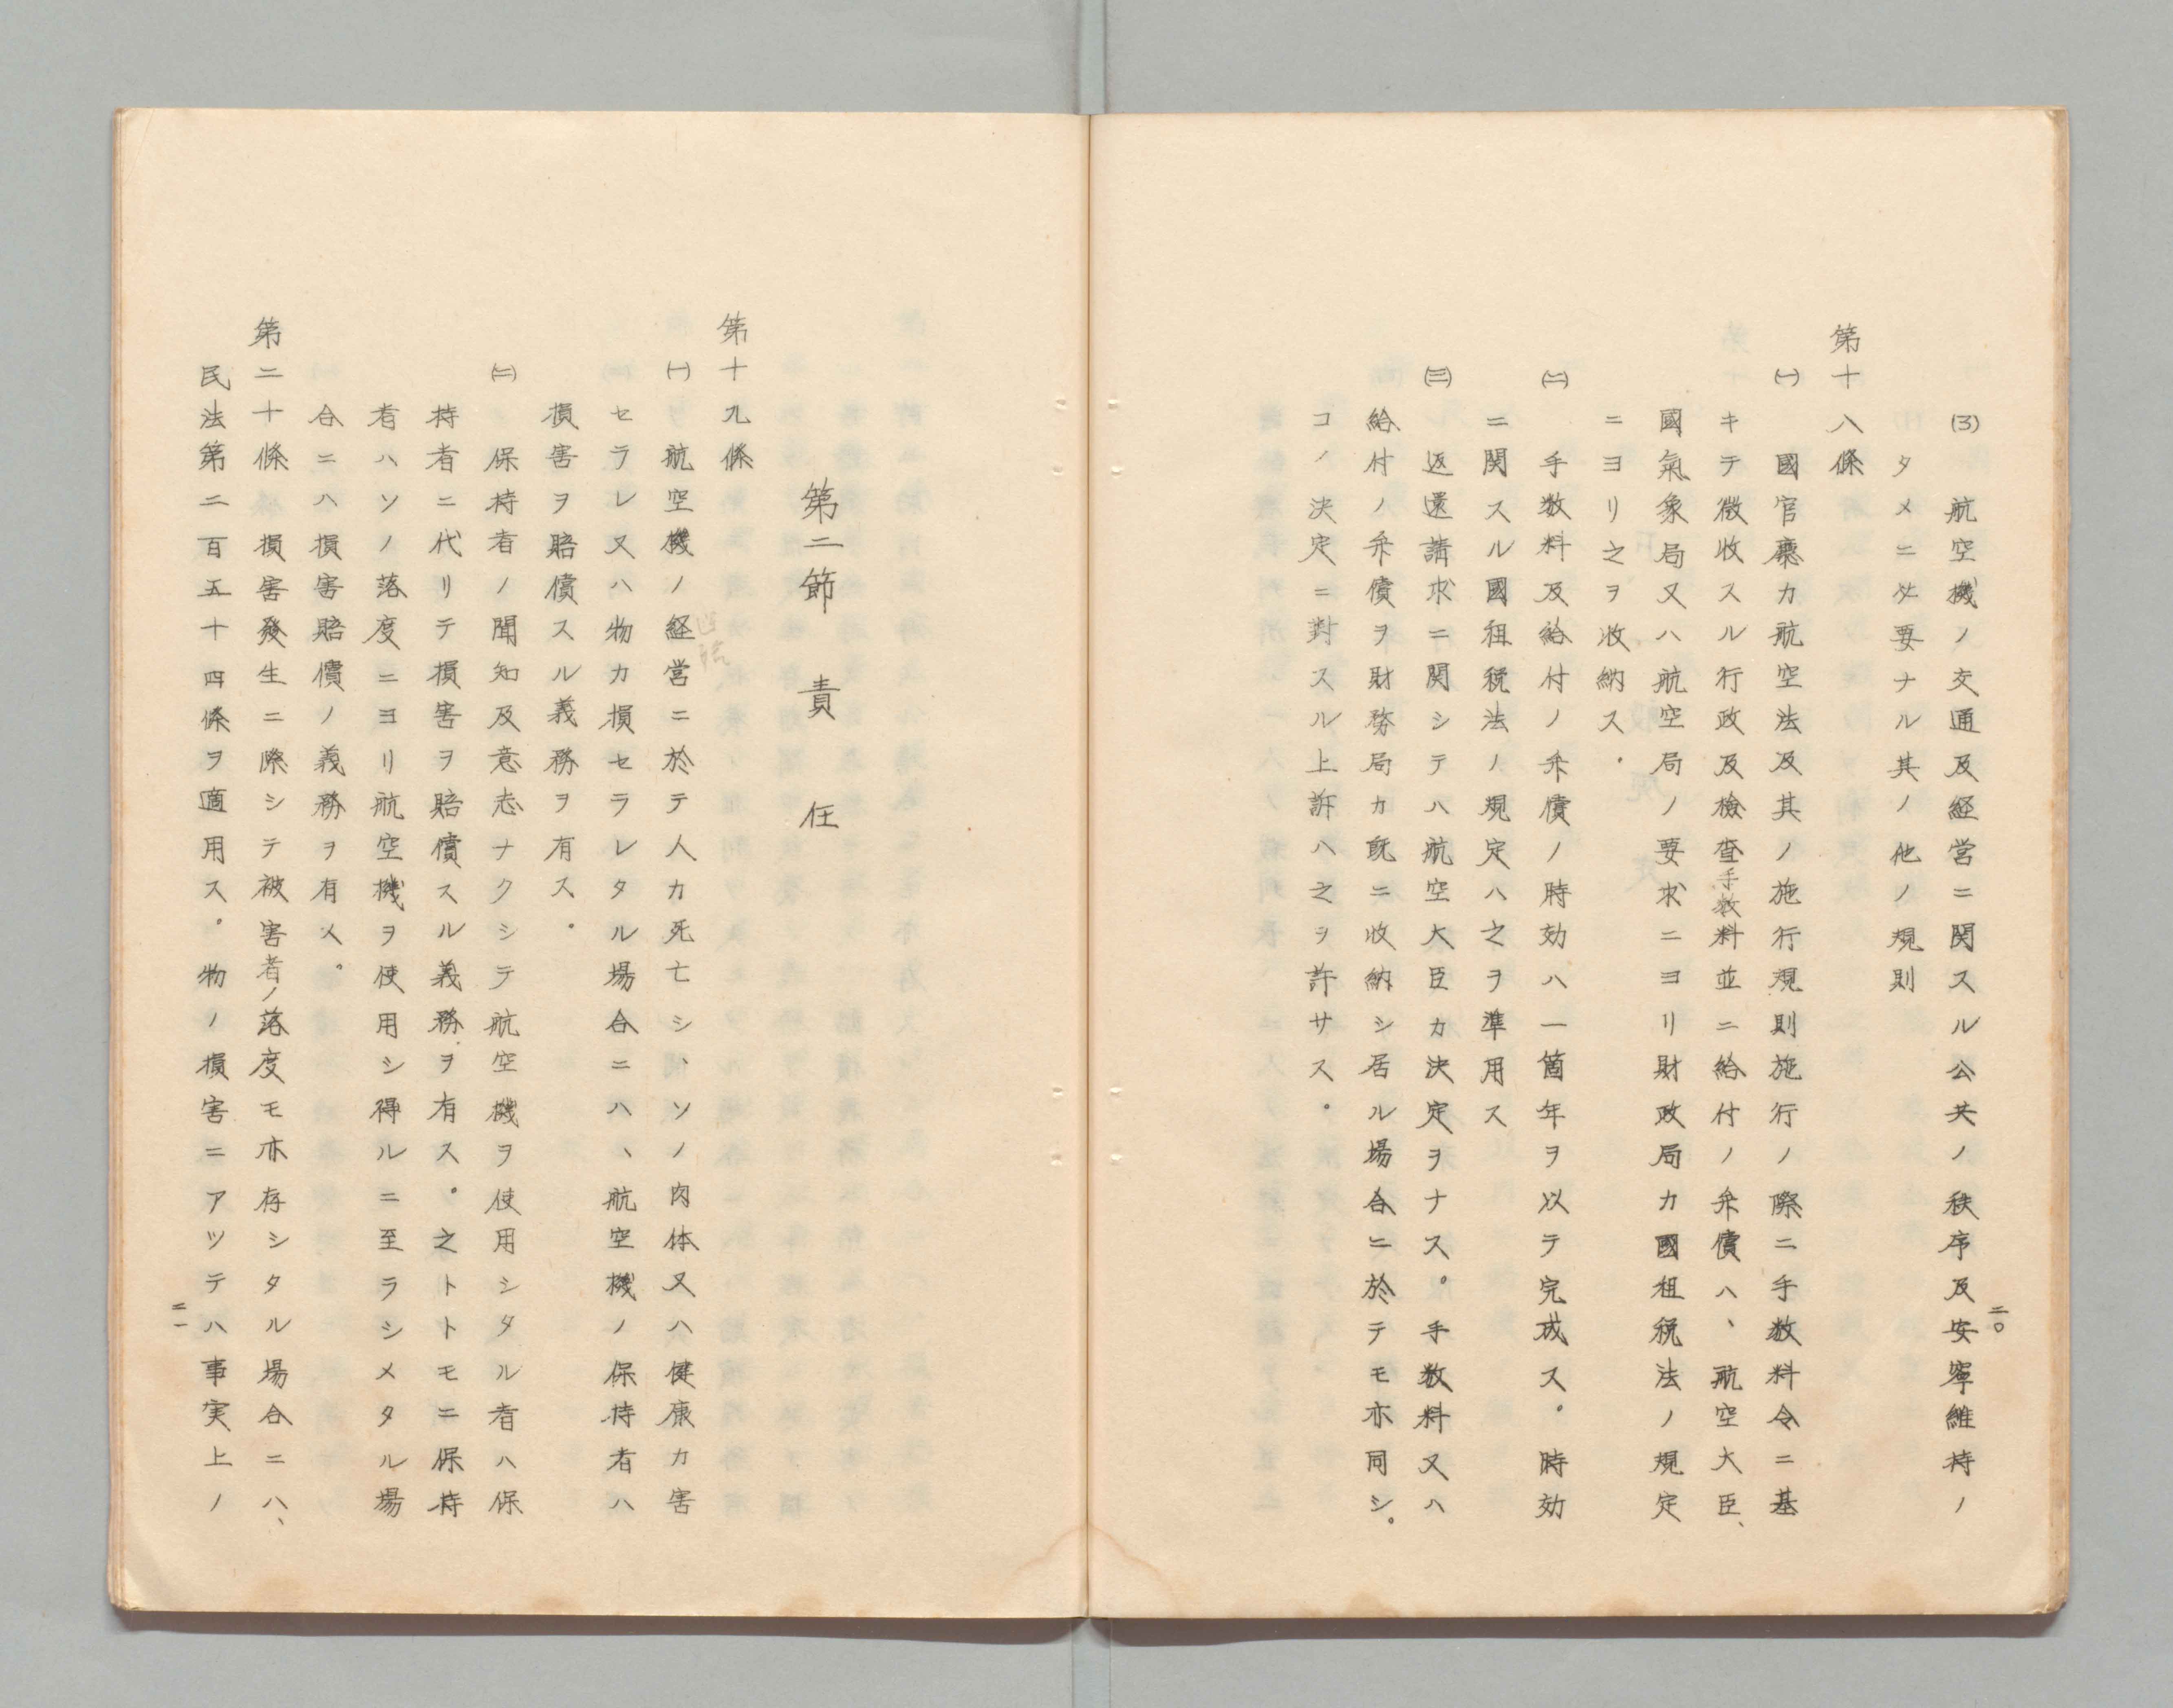 (3) 航空機ノ交通及経営ニ関スル公共ノ秩序及安寧維持ノ
タメニ必要ナル其ノ他ノ規則
第十八條
㈠ 國官廳カ航空法及其ノ施行規則施行ノ際ニ手数料令ニ基
キテ徴收スル行政及檢查手数料並ニ給付ノ弁償ハ、航空大臣、
國氣象局又ハ航空局ノ要求ニヨリ財政局カ國租税法ノ規定
ニヨリ之ヲ收納ス.
㈡ 手数料及給付ノ弁償ノ時効ハ一箇年ヲ以テ完成ス。時効
ニ関スル國租税法ノ規定ハ之ヲ準用ス
㈢ 返還請求ニ関シテハ航空大臣カ決定ヲナス。手数料又ハ
給付ノ弁償ヲ財務局カ既ニ收納シ居ル場合ニ於テモ亦同シ。
コノ決定ニ對スル上訴ハ之ヲ許サス。
二〇
第二節 責任
第十九條
㈠ 航空機ノ経営ニ於テ人カ死亡シ、ソノ肉体又ハ健康カ害
セラレ又ハ物カ損セラレタル場合ニハ、航空機ノ保持者ハ
損害ヲ賠償スル義務ヲ有ス.
㈡ 保持者ノ聞知及意志ナクシテ航空機ヲ使用シタル者ハ保
持者ニ代リテ損害ヲ賠償スル義務ヲ有ス。之トトモニ保持
者ハソノ落度ニヨリ航空機ヲ使用シ得ルニ至ラシメタル場
合ニハ損害賠償ノ義務ヲ有ス。
第二十條 損害發生ニ際シテ被害者ノ落度モ亦存シタル場合ニハ、
民法第二百五十四條ヲ適用ス。物ノ損害ニアツテハ事実上ノ
二一